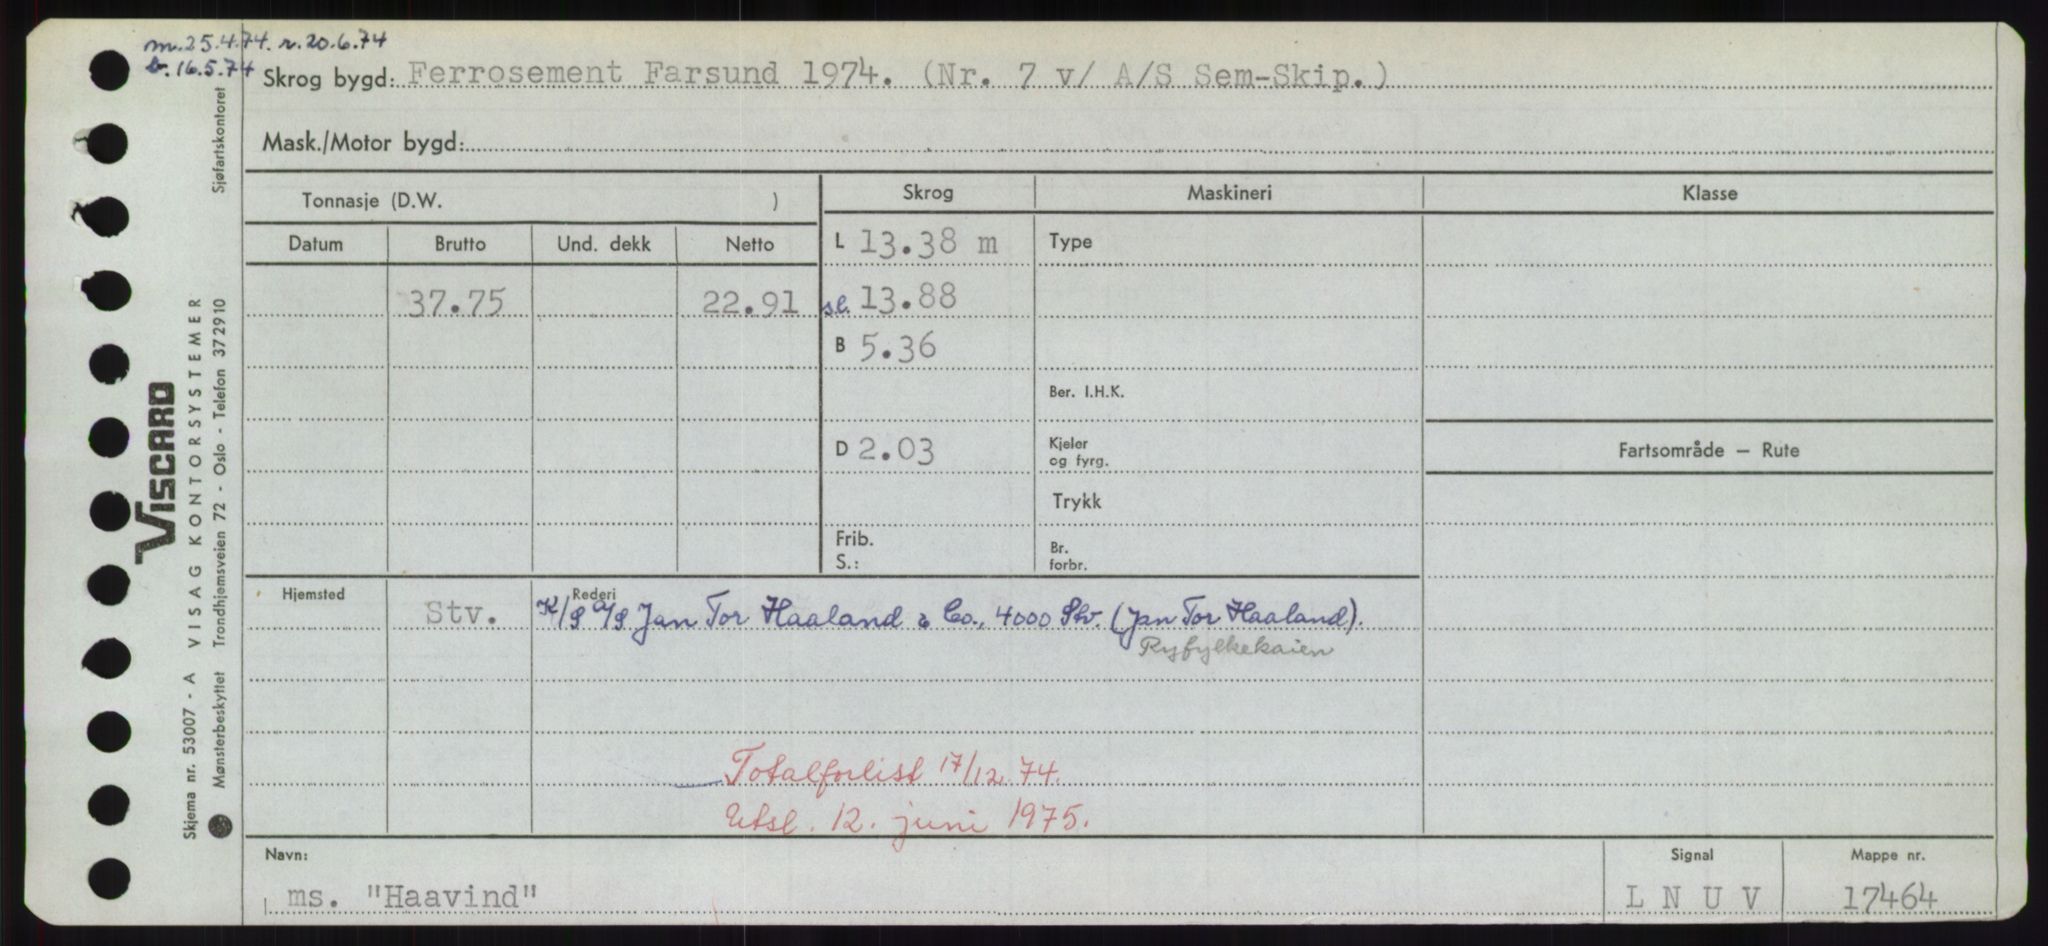 m. 25.4.74. r. 20.6.74
b. 16.5.74
Skrog bygd: Ferrosement Farsund 1974. (Nr. 7 v/ A/S Sem-Skip.)
Mask./Motor bygd:
Tonnasje (D.W. )
Skrog
Maskineri
Klasse
Datum
Brutto
Und. dekk
Netto
L 13.38 m
Type
37.75
22.91
sl. 13.88
B 5.36
Ber. I.H.K.
D 2.03
Kjeler
og fyrg.
Fartsområde — Rute
Trykk
Frib.
S.:
Br.
forbr.
Hjemsted
Rederi
Stv.
K/S A/S Jan Tor Haaland & Co., 4000 Stv. (Jan Tor Haaland).
Ryfylkekaien
Totalforlist 17/12.74.
Utsl. 12. juni 1975.
Navn:
Signal
Mappe nr.
ms. "Haavind"
L N U V
17464
VISCARD
Skjema nr. 53007 - A VISAG KONTORSYSTEMER
Mønsterbeskyttet Trondhjemsveien 72 - Oslo - Telefon 372910 Sjøfartskontoret